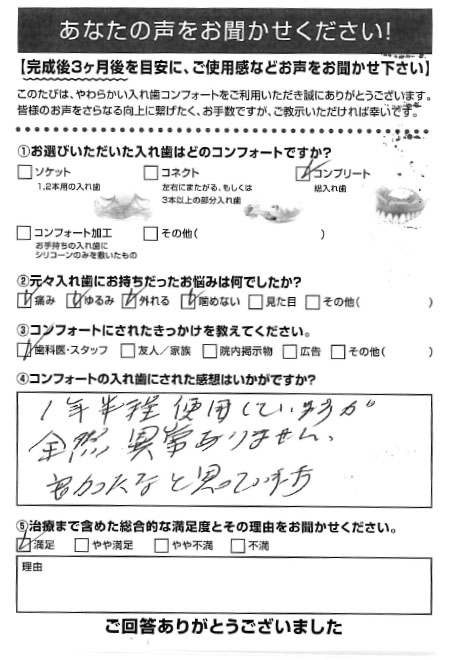 あなたの声をお聞かせください!
【完成後3ヶ月後を目安に、ご使用感などお声をお聞かせ下さい】
このたびは、やわらかい入れ歯コンフォートをご利用いただき誠にありがとうございます。
皆様のお声をさらなる向上に繋げたく、お手数ですが、ご教示いただければ幸いです。
①お選びいただいた入れ歯はどのコンフォートですか?
ソケット
1,2本用の入れ歯
コネクト
左右にまたがる、もしくは
3本以上の部分入れ歯
コンプリート
総入れ歯
コンフォート加工
お手持ちの入れ歯に
シリコーンのみを敷いたもの
その他( )
②元々入れ歯にお持ちだったお悩みは何でしたか?
痛み ゆるみ 外れる 噛めない 見た目 その他( )
③コンフォートにされたきっかけを教えてください。
歯科医・スタッフ 友人/家族 院内掲示物 広告 その他( )
④コンフォートの入れ歯にされた感想はいかがですか?
1年半程使用していますが
全然異常ありません。
良かったなと思っています
⑤治療まで含めた総合的な満足度とその理由をお聞かせください。
満足 やや満足 やや不満 不満
理由
ご回答ありがとうございました